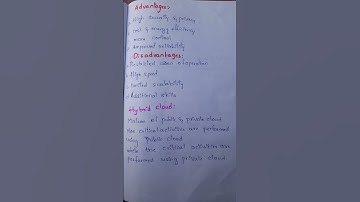 Advantages:
High security & privacy
cost & energy efficiency
more control
improved reliability
Disadvantages:
Restricted area of operation
High spent
limited scalability
Additional skills
Hybrid cloud:
Mixture of public & private cloud
Non critical activities are performed
using public cloud
while the critical activities are
performed using private cloud